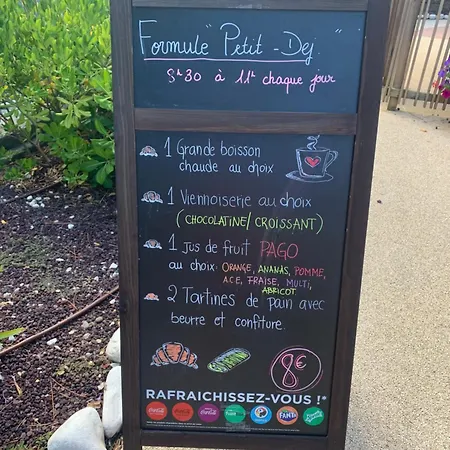 Formule "Petit - Dej. "
9h30 à 11h chaque jour
1 Grande boisson
chaude au choix
1 Viennoiserie au choix
(CHOCOLATINE/CROISSANT)
1 Jus de fruit PAGO
au choix: ORANGE, ANANAS, POMME,
ACE, FRAISE, MULTI,
ABRICOT
2 Tartines de pain avec
beurre et confiture.
8€
RAFRAICHISSEZ-VOUS !*
Coca-Cola Coca-Cola Coca-Cola FANTA